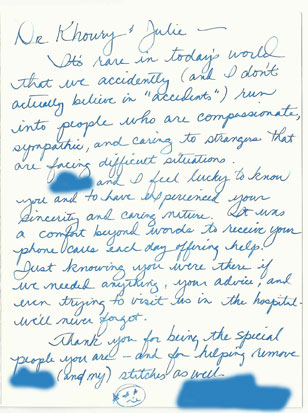 Dr. Khoury & Julie —
It's rare in today's world
that we accidently (and I don't
actually believe in "accidents") run
into people who are compassionate,
sympathic, and caring to strangers that
are facing difficult situations.
and I feel lucky to know
you and to have experienced your
sincerity and caring nature. It was
a comfort beyond words to receive your
phone calls each day offering help.
Just knowing you were there if
we needed anything, your advice, and
even trying to visit us in the hospital -
we'll never forget.
Thank you for being the special
people you are - and for helping remove
(and my) stitches as well.